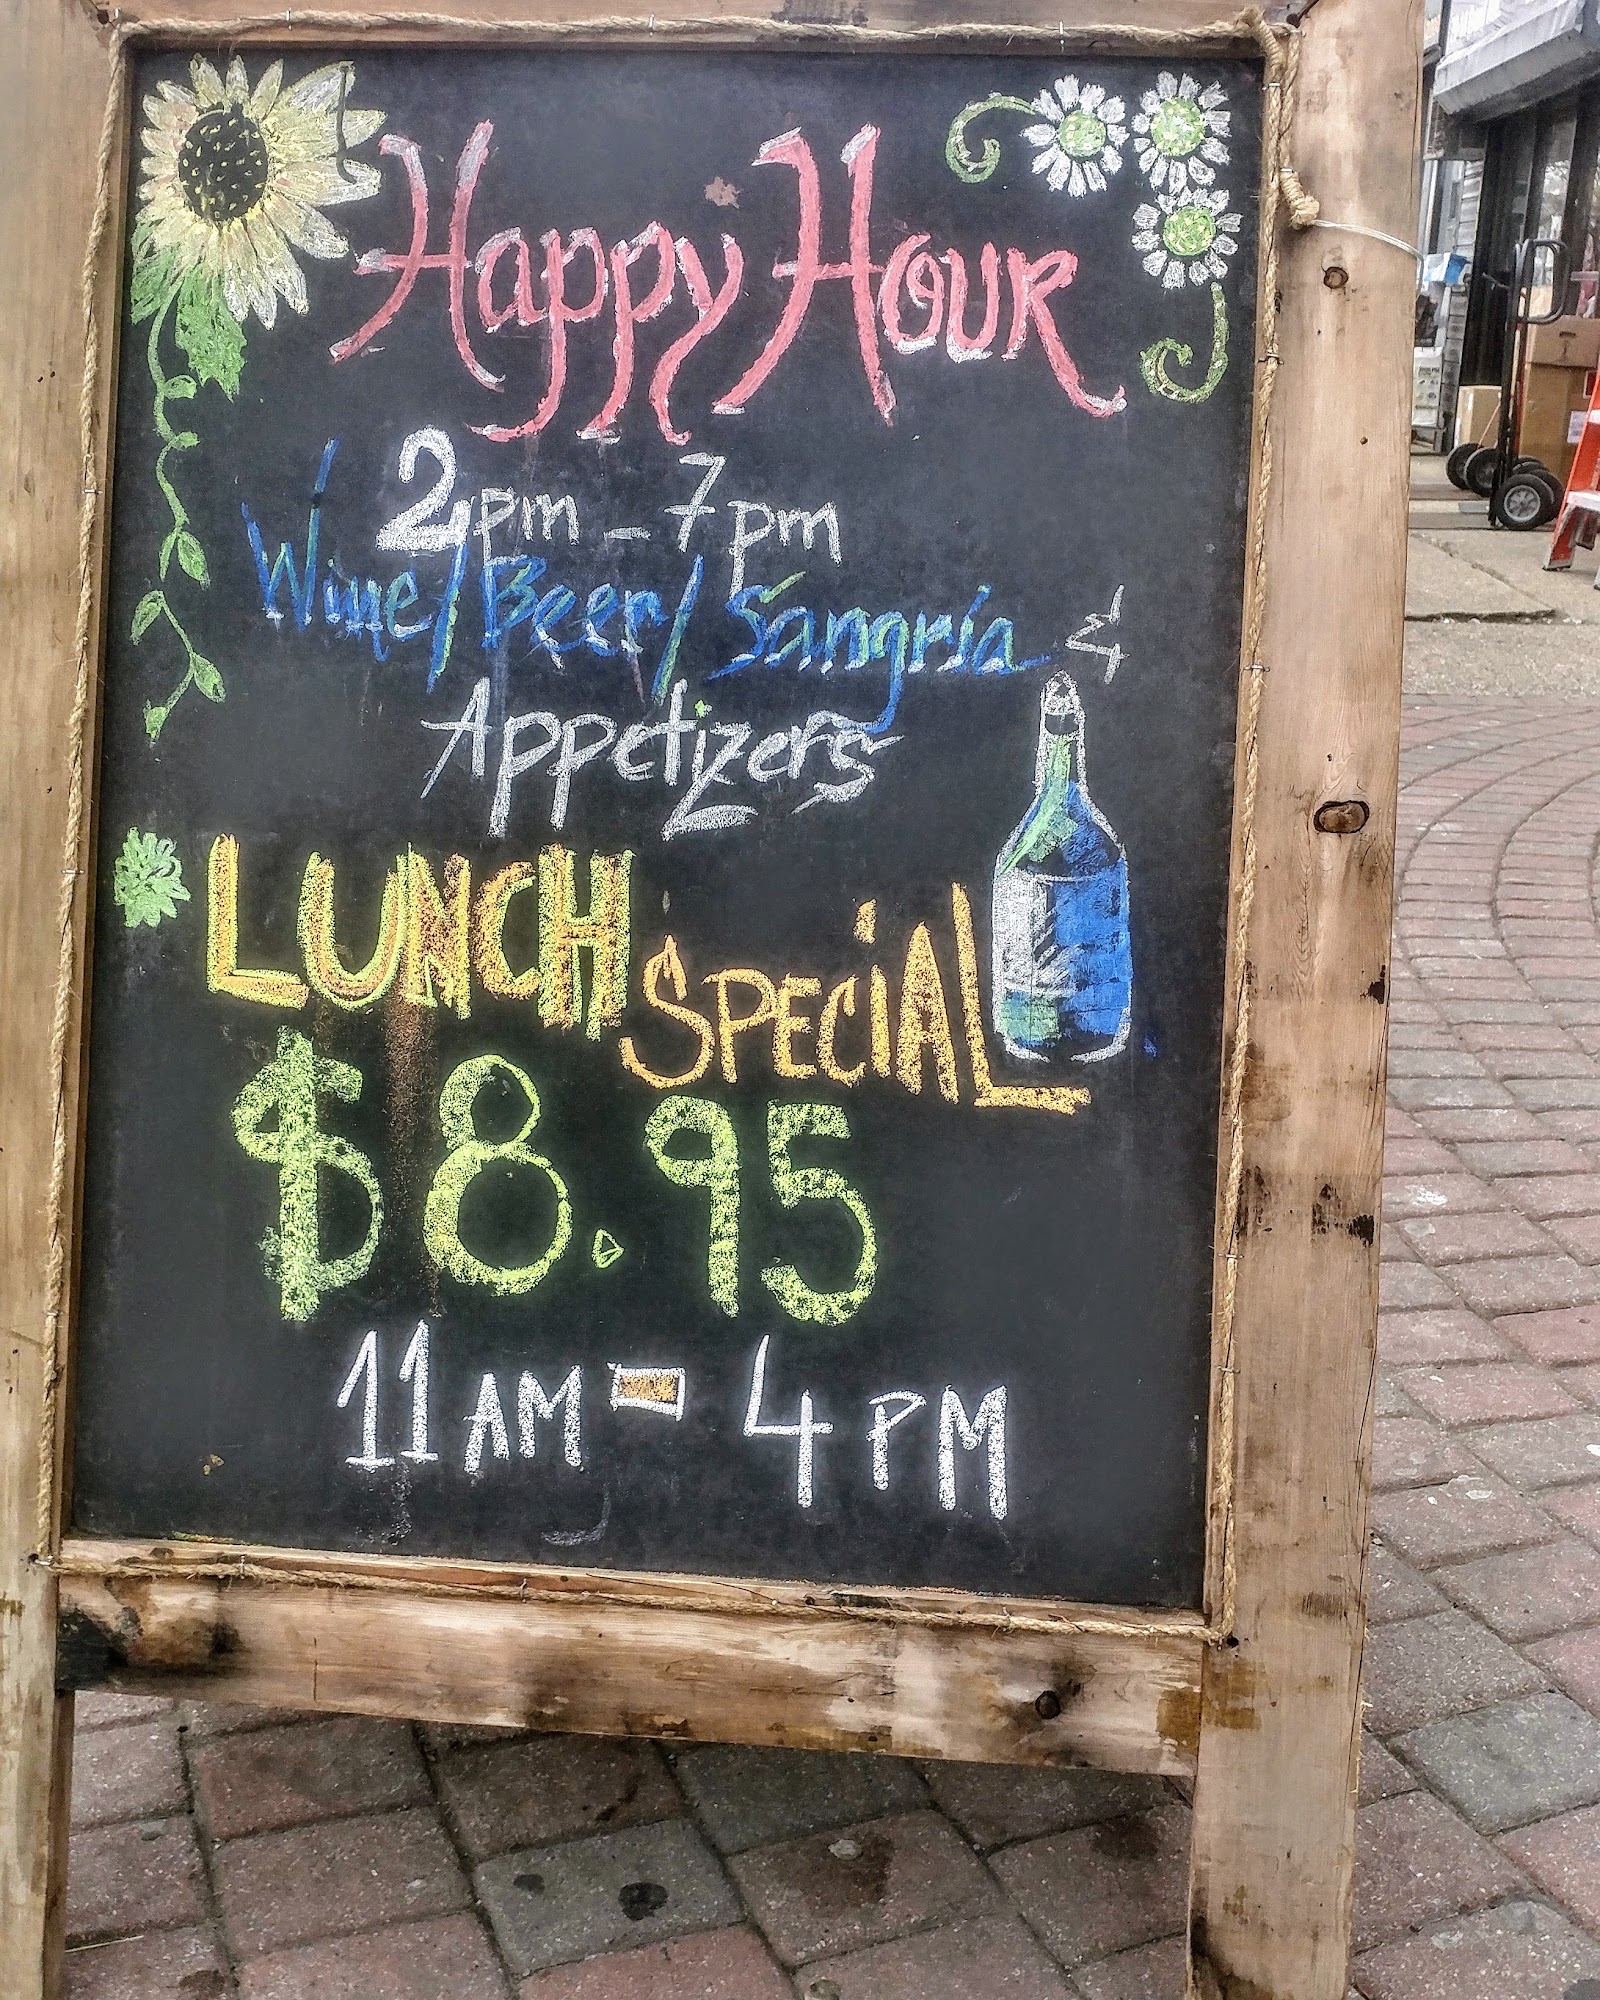 Happy Hour
2pm - 7pm
Wine/Beer/Sangria &
Appetizers
LUNCH SPECiAL
$8.95
11 AM - 4 PM